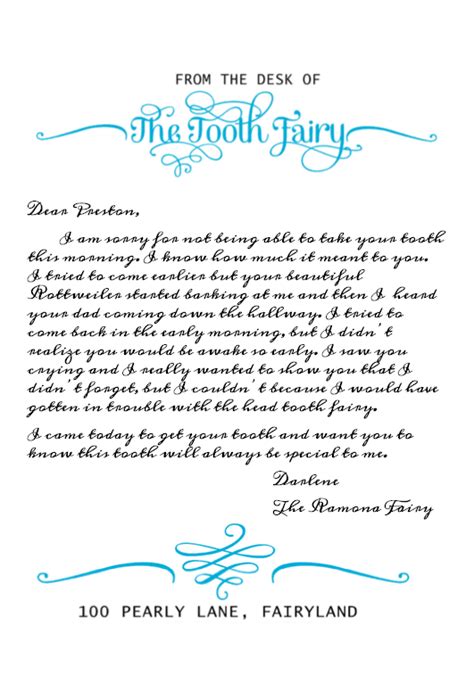 FROM THE DESK OF
The Tooth Fairy
Dear Preston,
I am sorry for not being able to take your tooth
this morning. I know how much it meant to you.
I tried to come earlier but your beautiful
Rottweiler started barking at me and then I heard
your dad coming down the hallway. I tried to
come back in the early morning, but I didn't
realize you would be awake so early. I saw you
crying and I really wanted to show you that I
didn't forget, but I couldn't because I would have
gotten in trouble with the head tooth fairy.
I came today to get your tooth and want you to
know this tooth will always be special to me.
Darlene
The Ramona Fairy
100 PEARLY LANE, FAIRYLAND